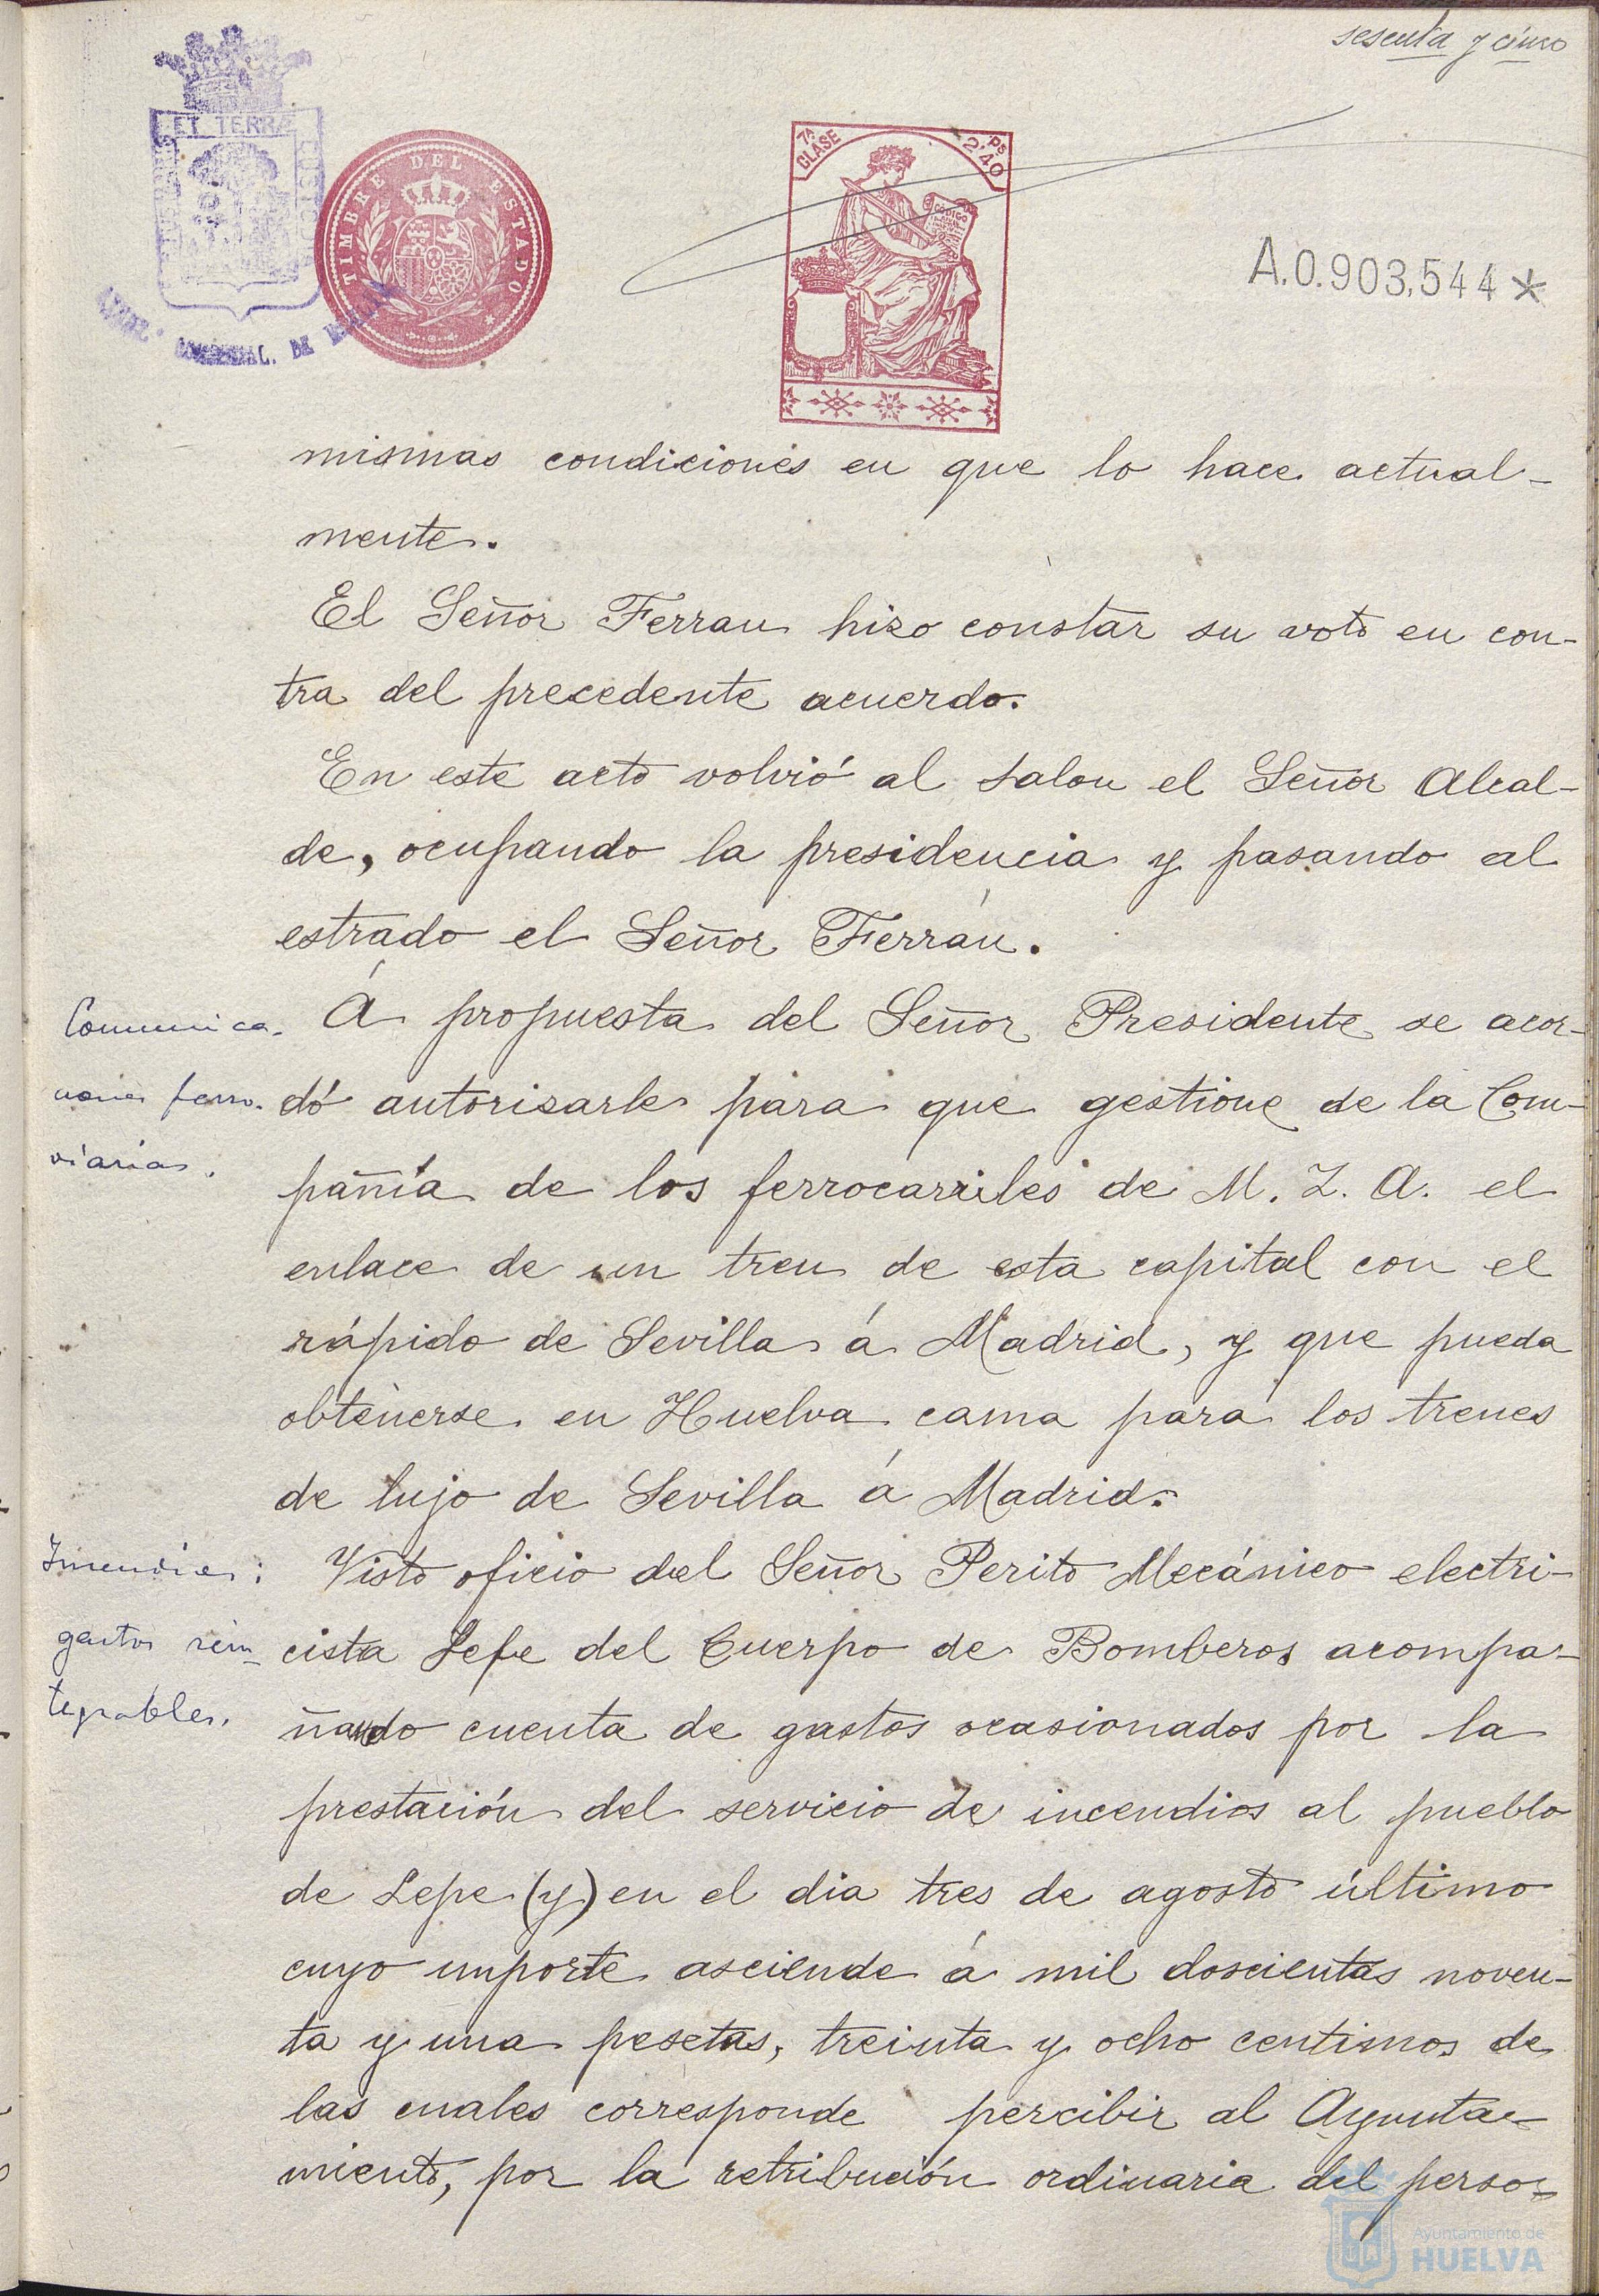 sesenta y cinco
ET TERRA
TIMBRE DEL ESTADO
7ª CLASE
Ps 2'40
CODIGO
DE
A.0.903,544*
mismas condiciones en que lo hace actual-
mente.
El Señor Ferran hizo constar su voto en con-
tra del precedente acuerdo.
En este acto volvió al salon el Señor Alcal-
de, ocupando la presidencia y pasando al
estrado el Señor Ferrán.
Comunica-
ciones ferro-
viarias.
Á propuesta del Señor Presidente se acor-
dó autorisarle para que gestione de la Com-
pañía de los ferrocarriles de M. Z. A. el
enlace de un tren de esta capital con el
rápido de Sevilla á Madrid, y que pueda
obtenerse en Huelva cama para los trenes
de lujo de Sevilla á Madrid.
Incendios:
gastos rein-
tegrables.
Visto oficio del Señor Perito Mecánico electri-
cista Jefe del Cuerpo de Bomberos acompa-
ñando cuenta de gastos ocasionados por la
prestación del servicio de incendios al pueblo
de Lepe (y) en el dia tres de agosto último
cuyo importe asciende á mil doscientas noven-
ta y una pesetas, treinta y ocho centimos de
las cuales corresponde percibir al Ayunta-
miento, por la retribución ordinaria del perso-
Ayuntamiento de
HUELVA